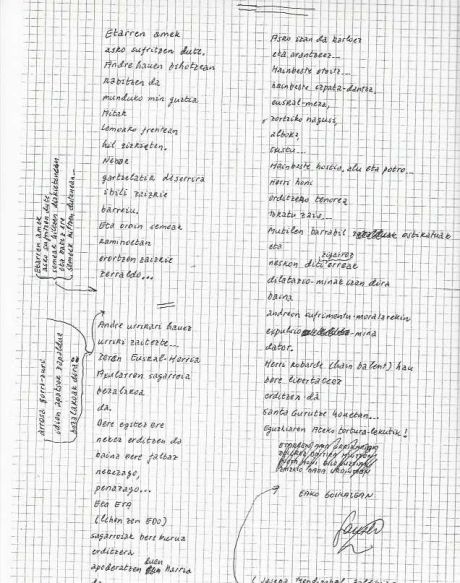 Etarren amek
asko sufritzen dute.
Andre hauen bihotzean
kabitzen da
munduko min guztia
Hitak
Lemoako frentean
hil zizkieten.
Nebak
gartzelatik deserrira
ibili zaizkie
barreiu.
Eta orain semeak
kaminoetan
erortzen zaizkie
zerraldo...
Etarren amek
asko sufritzen dute
semeak hiltzen dizkietenean
eta batez ere
semeek hiltzen dutenean...
Andre urrikari hauek
urriki zaitezte...
zoren Euskal-Herria
Apularren sagarroia
bezalakoa
da.
Bere egitez ere
nekez erditzen da
baina bere faltaz
nekezago,
penazago...
Eta ETA
(lehen zen EDO)
sagarroiak bere kumez
erditzera
apoderatzen duen harria
da
arrosa gorri-zuri
odien apatxak zapaldua
bezalakoak direla
Asko izan da kartoez
eta arantzeez...
Hainbeste otoitz...
hainbeste ezpata-dantza,
euskal-meza,
zortziko nagusi,
alboka,
txistu...
Hainbeste hostia, alu eta potro...
Herri honi
orditzeko tenorea
tokatu zaio...
Mutilen barrabil ostikatuak
eta
neskon diti zigarroz erreak
dilatazio-minak izan dira
baina
andreon sufrimentu-moralarekin
expulsio-mina
dator.
Herri kobarde (hain balent) hau
bere libertateaz
erditzen da
Santa Gurutze honetan...
Eguzkiaren Ateko tortura-lekutik!
EAKO GOIKALEAN